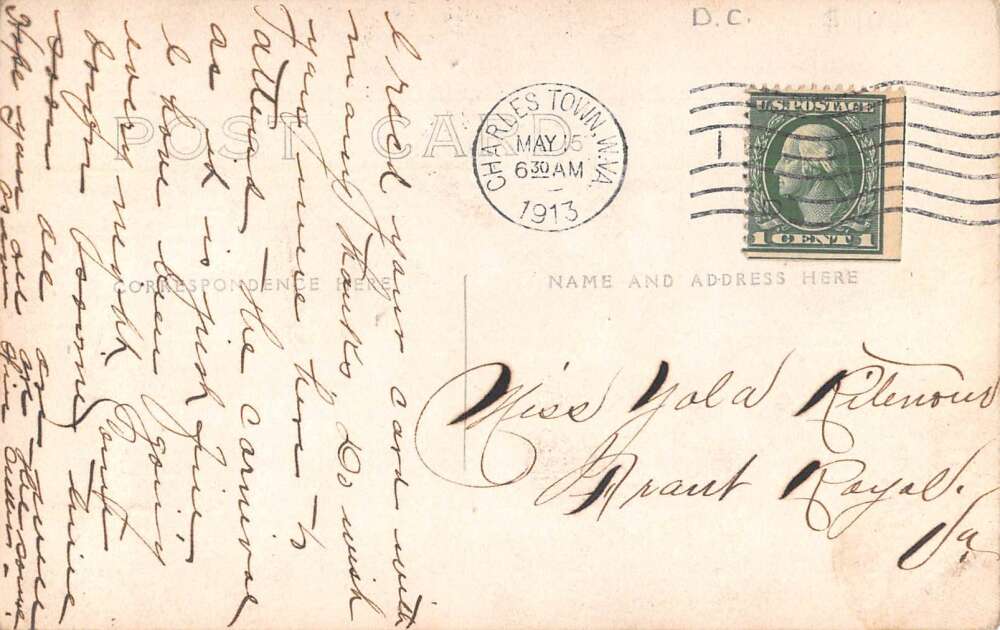 D. C.
POST CARD
CHARLES TOWN, W. VA.
MAY 15
6 30 AM
1913
U.S. POSTAGE
1 CENT 1
CORRESPONDENCE HERE
NAME AND ADDRESS HERE
I recd your card with
many thanks, Do wish
you were here to
attend the carnival
as it is just fine,
I have been going
every night. Can't
long
soon
Hope you are
Miss Yola Ritenour
Frant Royal.
Va